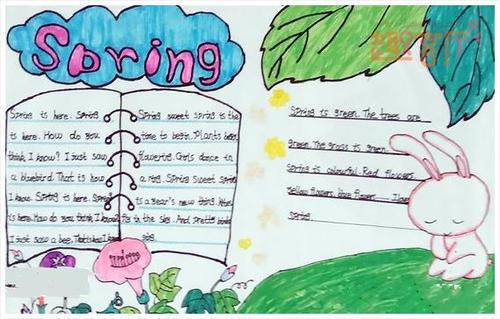 Spring
Spring is here. Spring
is here. How do you
think, I know? I just saw
a bluebird. That is how
I know. Spring is here. Spring
is here. How do you think, I know
I just saw a bee. That's how I know
Spring sweet spring is the
time to begin. Plants been
flowering. Girls dance in
a ring. Spring sweet spring
is a year's new thing.
in the sky. And pretty birds
sing.
Spring is green. The trees are
green. The grass is green.
Spring is colourful. Red flowers.
Yellow flowers. blue flowers...... I love
Spring.